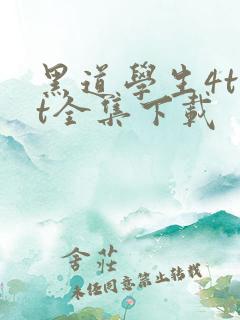 黑道學生4t
t全集下載
舍莊
未经同意禁止转载